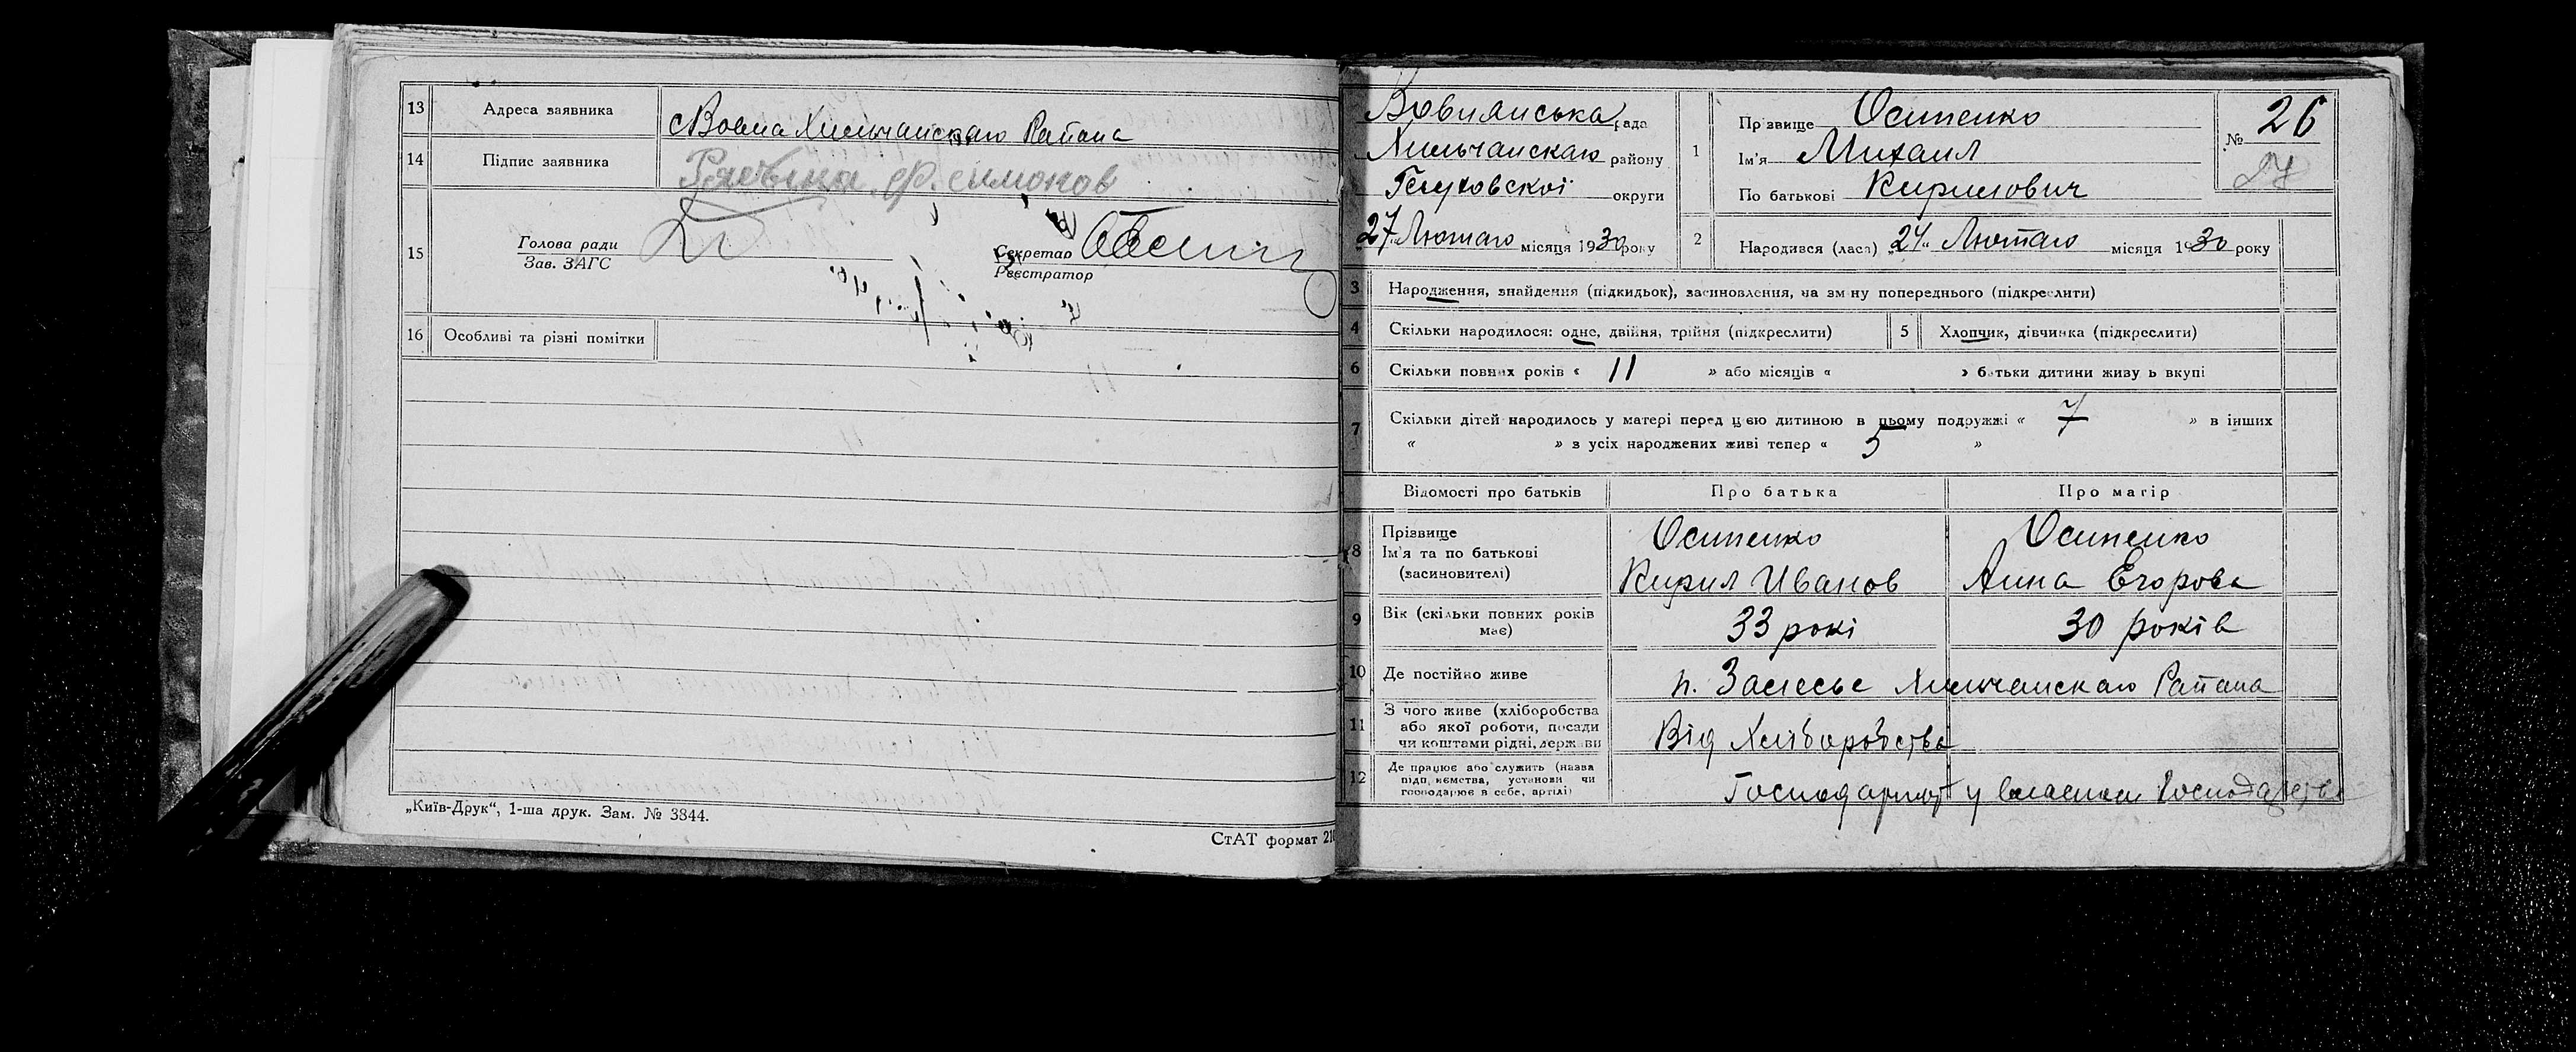 13 Адреса заявника с Вовна Хильчанскаго Района
14 Підпис заявника
15 Голова ради
Зав. ЗАГС
Секретар
Реєстратор
16 Особливі та різні помітки
„Київ-Друк“, 1-ша друк. Зам. № 3844.
СтАТ формат 210
Вовнянська рада
Хильчанскаго району
Глуховскої округи
27 Лютаго місяця 1930 року
1 Прізвище Осипенко
Ім'я Михаил
По батькові Кирилович
№ 26
27
2 Народився (лась) „24“ Лютаго місяця 1930 року
3 Народження, знайдення (підкидьок), засиновлення, на зміну попереднього (підкреслити)
4 Скільки народилося: одне, двійня, трійня (підкреслити)
5 Хлопчик, дівчинка (підкреслити)
6 Скільки повних років « 11 » або місяців « » батьки дитини живуть вкупі
7 Скільки дітей народилось у матері перед цією дитиною в цьому подружжі « 7 » в інших
« » з усіх народжених живі тепер « 5 »
Відомості про батьків Про батька Про матір
8 Прізвище
Ім'я та по батькові
(засиновителі)
Осипенко
Кирил Иванов
Осипенко
Анна Егорова
9 Вік (скільки повних років має) 33 рокі 30 років
10 Де постійно живе п. Залесье Хильчанскаго Района
11 З чого живе (хліборобства
або якої роботи, посади
чи коштами рідні, держави
Від Хліборобства
12 Де працює або служить (назва
підприємства, установи чи
господарює в себе, артілі)
Господарюют у власном господарстве